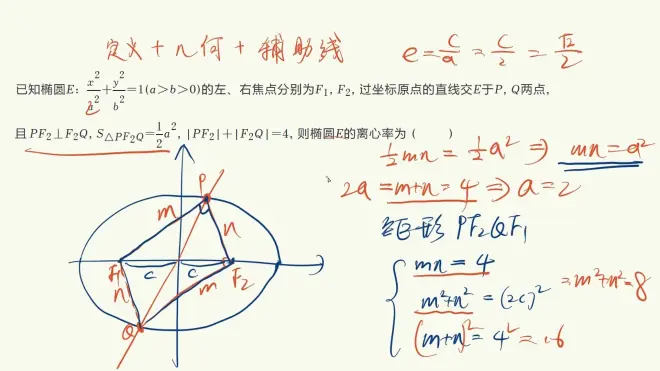 定义+几何+辅助线
e=c/a=c/2=√2/2
已知椭圆E: x²/a²+y²/b²=1(a>b>0)的左、右焦点分别为F₁, F₂, 过坐标原点的直线交E于P, Q两点,
2
且PF₂⊥F₂Q, S△PF₂Q=1/2a², |PF₂|+|F₂Q|=4, 则椭圆E的离心率为 ( )
1/2mn=1/2a² ⇒ mn=a²
2a=m+n=4 ⇒ a=2
矩形 PF₂QF₁
mn=4
m²+n²=(2c)² =m²+n²=8
(m+n)²=4²=16
P
m
n
F₁
c
c
F₂
n
m
Q